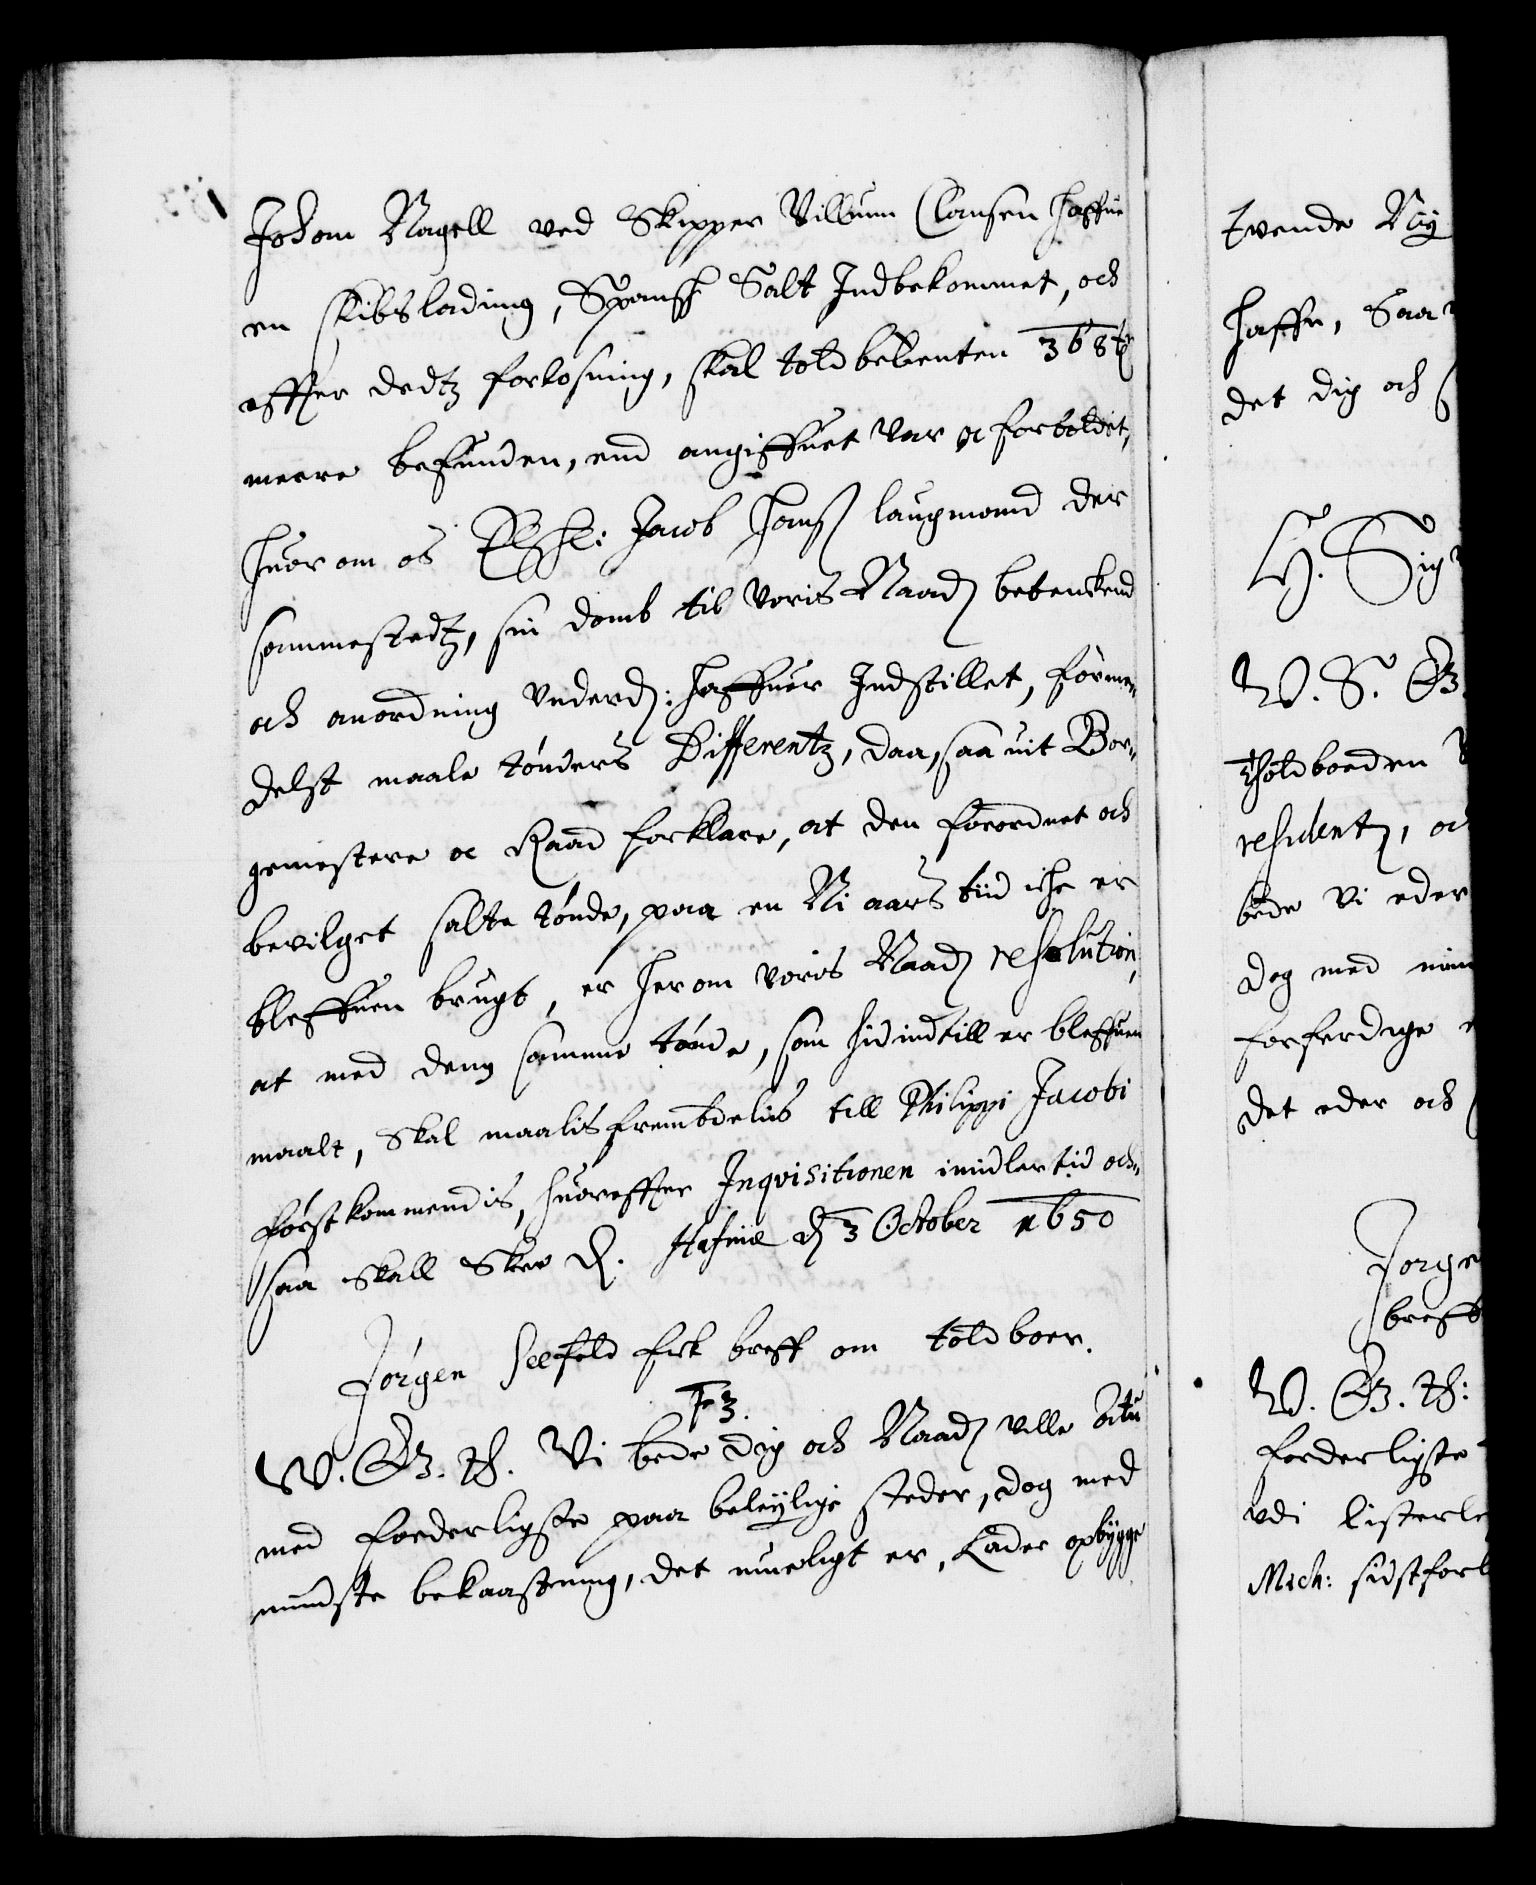 Johan Nagell ved Skipper Villum Clausen haffue
en skibsladning, Spansk Salt Indbekommet, och
effter dedtz forlosning, skal toldbetienten 368 tr
meere befunden, end angiffuet var oc fortoldet,
huor om os Jacob Hanß laugmand der
sammestedtz, sin domb til voris Naadz betenkend
och anordning underd: haffuer Indstillet, formee,
delst maale tønders Differentz, daa, saauit Bor,,
gemestere oc Raad forklare, at den forordnet och
bevilget salte tønde, paa en Ni aars tiid iche er
bleffuen brugt, er herom voris Naadz resolution,
at med deng samme tønde, som hid indtill er bleffuen
maalt, skal maalis frembdelis till Philippi Jacobi
førstkommendis, huoreffter Inqvisitionen imidlertid och,,
saa skall skee d. Hafniæ d 3 October 1650
Jørgen Seefeld fik breff om toldboer.
F 3.
W. G. t. Vi bede dig och Naadz ville Attu
med forderligste paa beleylige steder, dog med
mindste bekaastning, det mueligt er, Lader opbygge
tvende Ny
haffr, Saa
det dig och
H. Sig
W. S. G.
Toldboeden
residentz, oc
bede Vi eder
dog med min
forferdige
det eder och
Jørge
breff
W. G. t:
forderligste
udi Listerle
Mich: sidstforl